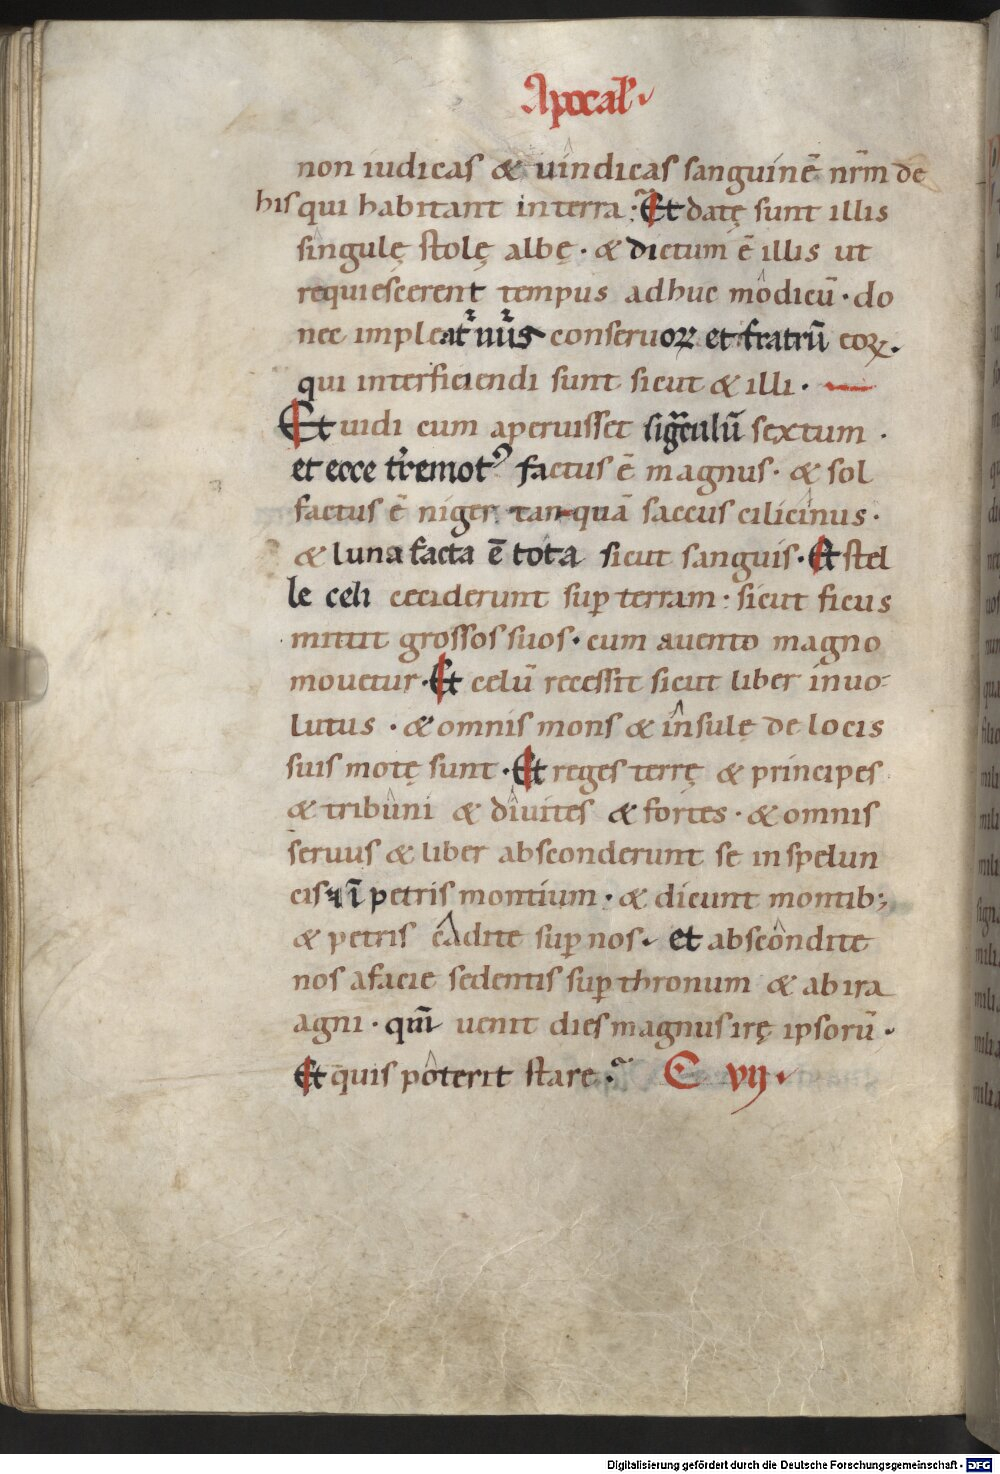 Apocal̄
non iudicas & uindicas sanguinē nr̄m de
his qui habitant in terra : Et datę sunt illis
singulę stolę albę · & dictum ē illis ut
requiescerent tempus adhuc modicū · do
nec impleat᷑ conseruoꝝ et fratrū eoꝝ.
qui interficiendi sunt sicut & illi ·
Et uidi cum aperuisset sextum ·
et ecce t̄remotꝰ factus ē magnus · & sol
factus ē niger tanquā saccus cilicinus ·
& luna facta ē tota sicut sanguis · Et stel
le celi ceciderunt sup̄ terram : sicut ficus
mittit grossos suos · cum auento magno
mouetur · Et celū recessit sicut liber inuo-
lutus · & omnis mons & insulę de locis
suis motę sunt · Et reges terrę & principes
& tribuni & diuites & fortes · & omnis
seruus & liber absconderunt se in spelun
cis ⁊ ī petris montium · & dicunt montib;
& petris cadite sup̄ nos · et abscondite
nos afacie sedentis sup̄ thronum & ab ira
agni · qm̄ uenit dies magnus irę ipsorū ·
Et quis poterit stare : C vij
Digitalisierung gefördert durch die Deutsche Forschungsgemeinschaft - DFG